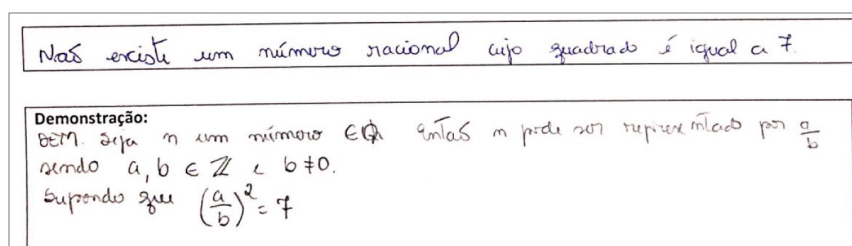 Não existe um número racional cujo quadrado é igual a 7.
Demonstração:
DEM. Seja n um número ∈ Q então n pode ser representado por a/b
sendo a, b ∈ Z e b ≠ 0.
Supondo que (a/b)² = 7